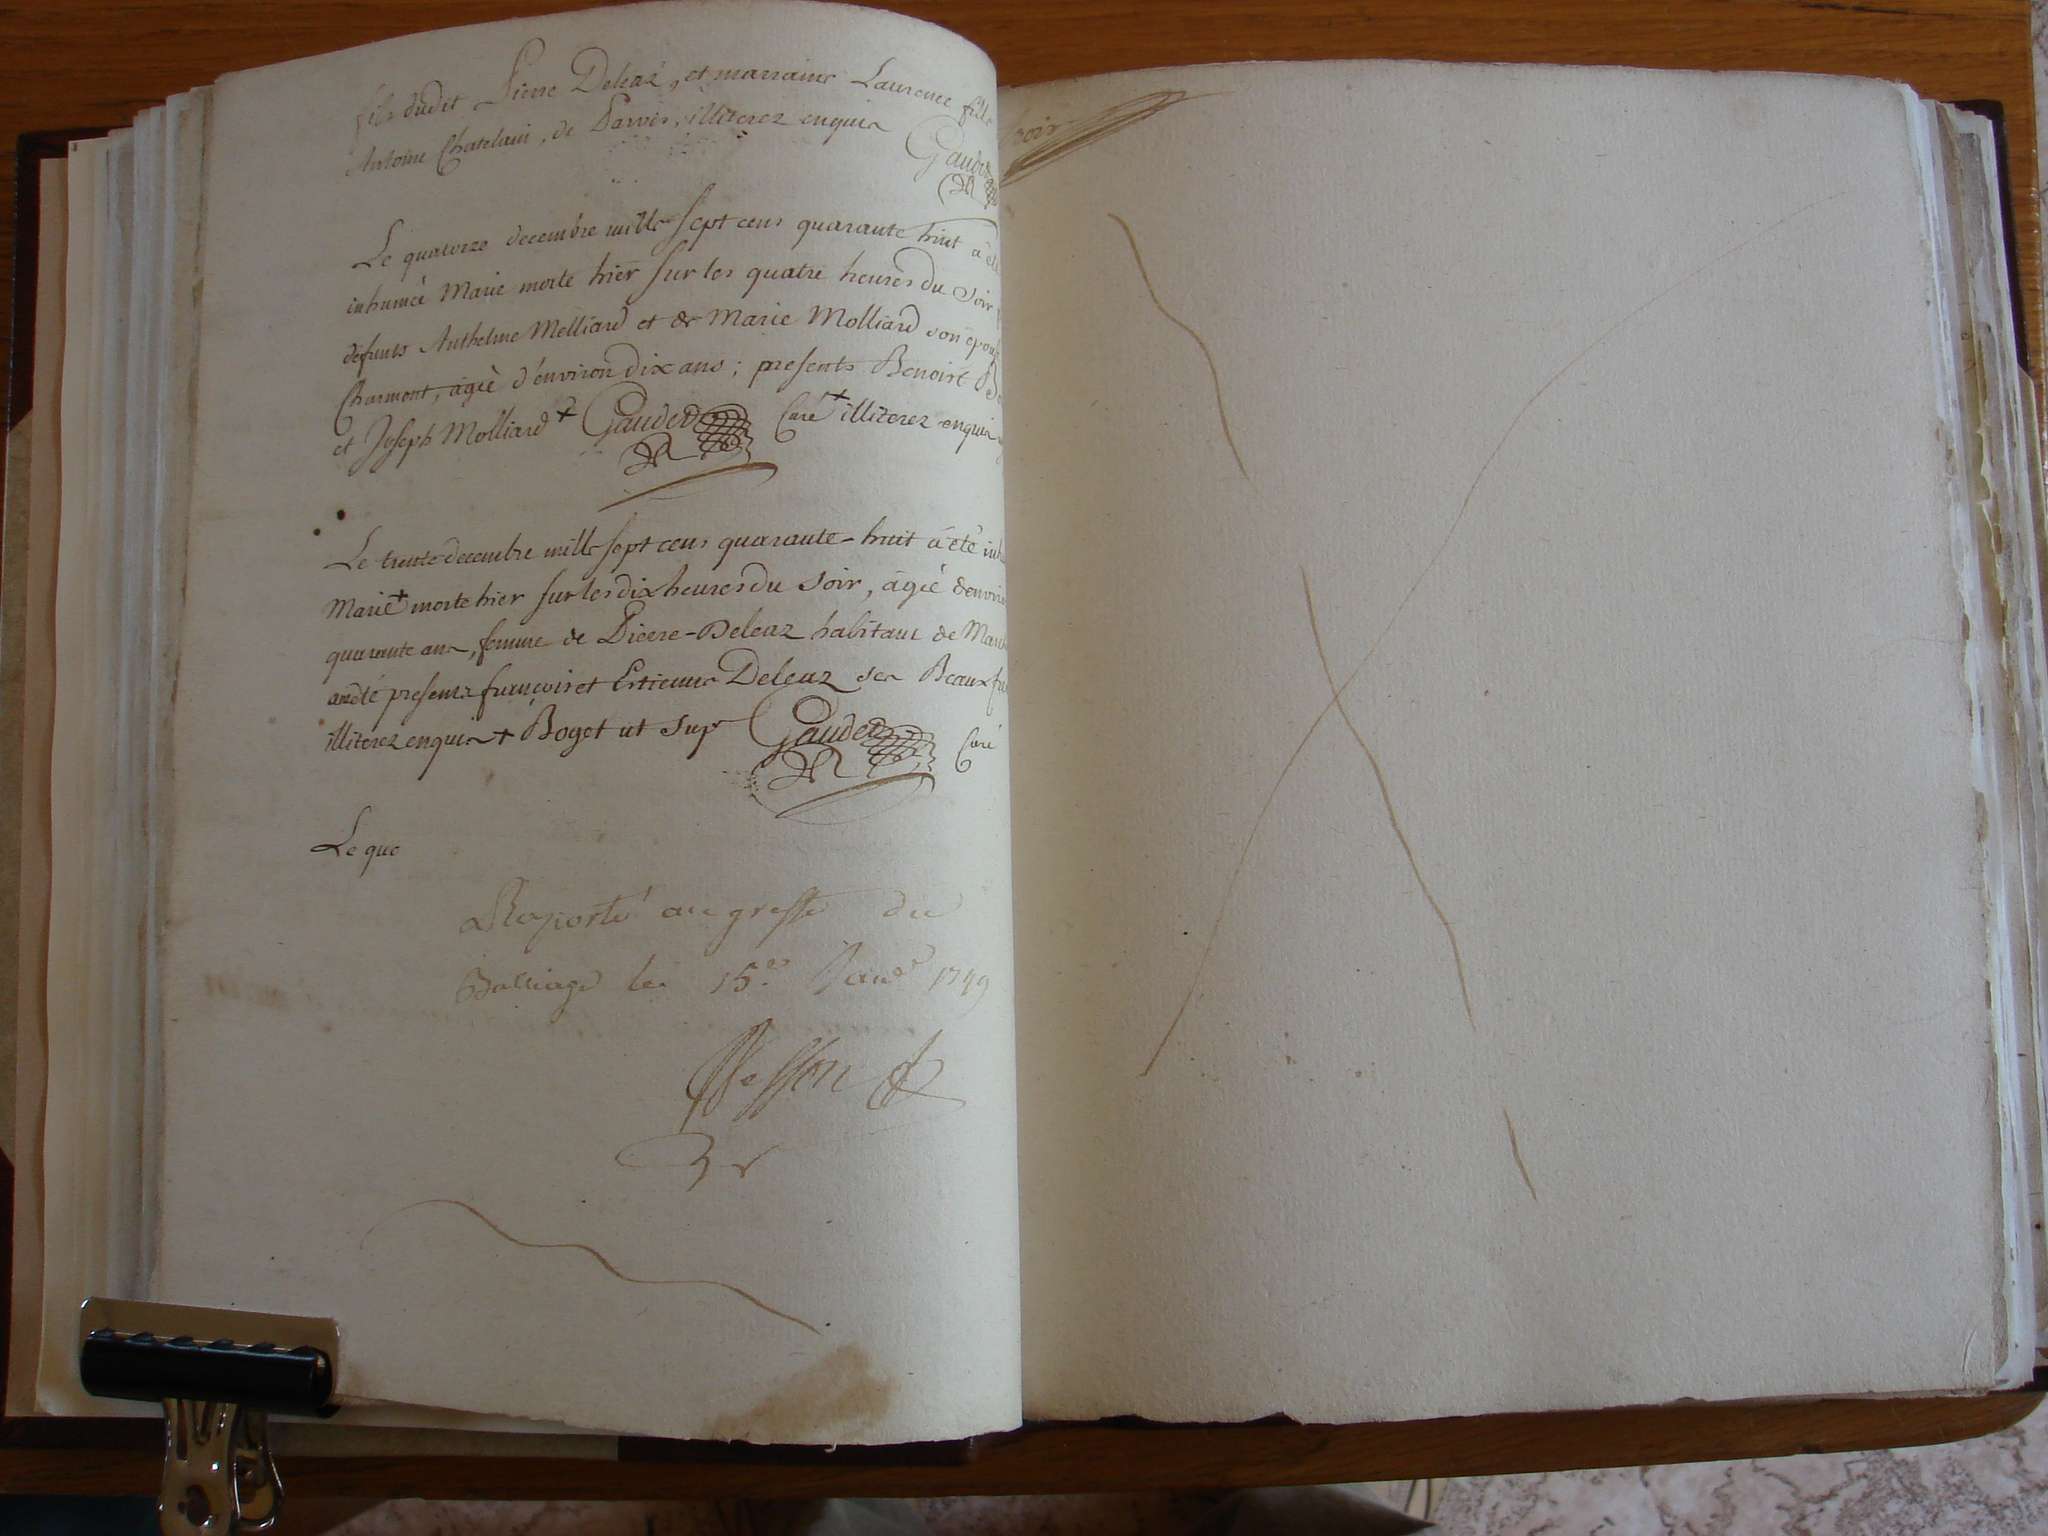 fils dudit Pierre Deleaz, et marraine Laurence fille
Antoine Chatelain, de Parves, illiterez enquis
Gaudet
Le quatorze decembre mille sept cens quarante huit à été
inhumée Marie morte hier sur les quatre heures du soir
defunts Anthelme Molliard et de Marie Molliard son epouse
Charmont, agée d'environ dix ans ; presents Benoist
et Joseph Molliard + Gaudet Curé + illiterez enquis
Le trente decembre mille sept cens quarante-huit à été
Marie + morte hier sur les dix heures du soir, agée d'environ
quarante ans, femme de Pierre-Deleaz habitant de
presents françois et Estienne Deleaz ses Beaux
illiterez enquis + Boget ut sup Gaudet Curé
Le que
Raporté au greffe du
Balliage le 15e Janer 1749